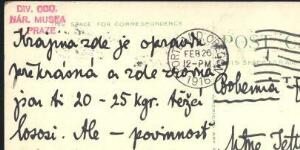 DIV. ODD.
NÁR. MUSEA
PRAZE
SPACE FOR CORRESPONDENCE
POST
PORTLAND, ORE.
FEB 26
12-PM
1916
Krajina zde je opravdu
překrásná a zde
jsou ti 20-25 kgr. těžcí
lososi. Ale – povinnost
Bohemia